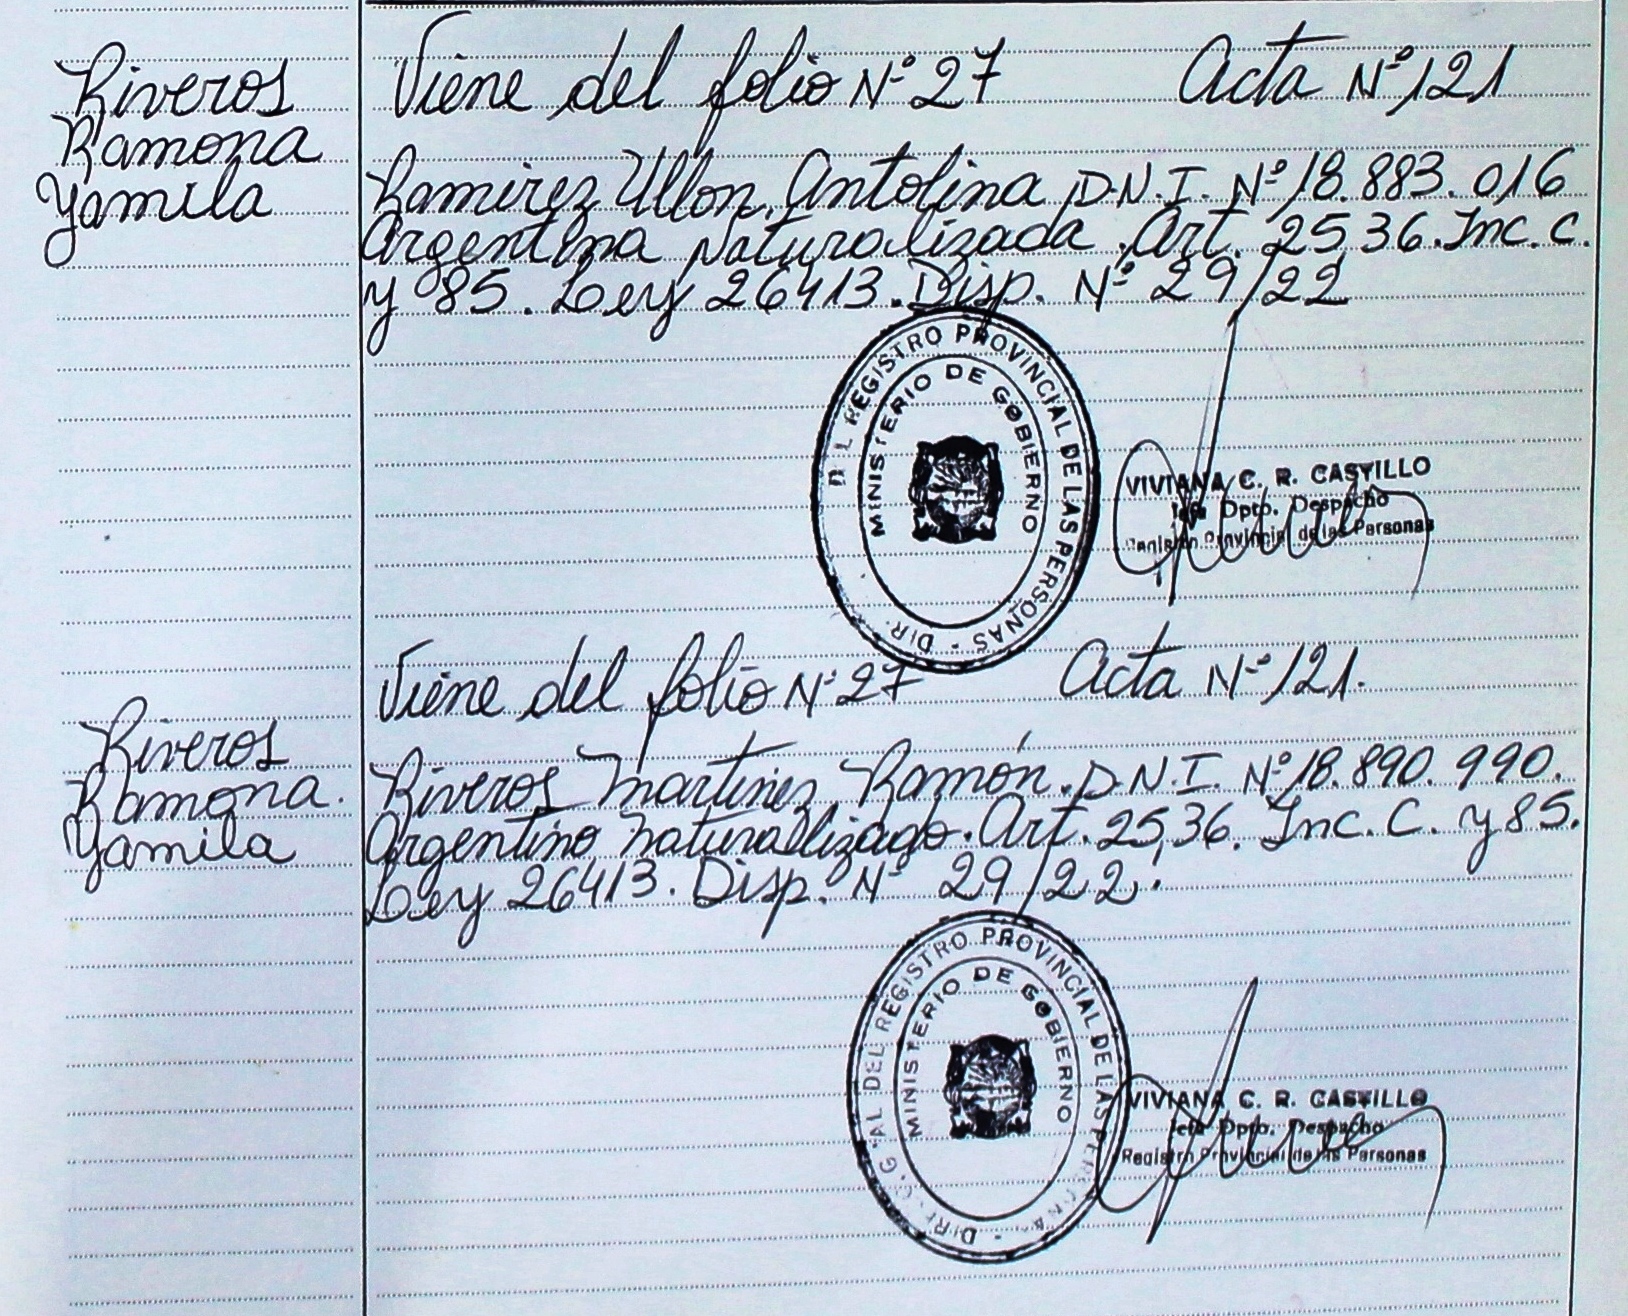 Riveros
Ramona
Yamila
Viene del folio Nº 27 Acta Nº 121
Ramirez Ullon, Antolina D.N.I. Nº 18.883.016
Argentina Naturalizada. Art. 25 36. Inc. c.
y 85. Ley 26413. Disp. Nº 29/22
DEL REGISTRO PROVINCIAL DE LAS PERSONAS - DIR.
MINISTERIO DE GOBIERNO
VIVIANA C. R. CASTILLO
Jefa Dpto. Despacho
Registro Provincial de las Personas
Viene del folio Nº 27 Acta Nº 121.
Riveros
Ramona.
Yamila
Riveros Martinez Ramón. D.N.I. Nº 18.890.990.
Argentino Naturalizado. Art. 25,36. Inc. C. y 85.
Ley 26413. Disp. Nº 29/22.
AL DEL REGISTRO PROVINCIAL DE LAS
MINISTERIO DE GOBIERNO
VIVIANA C. R. CASTILLO
Jefa Dpto. Despacho
Registro Provincial de las Personas